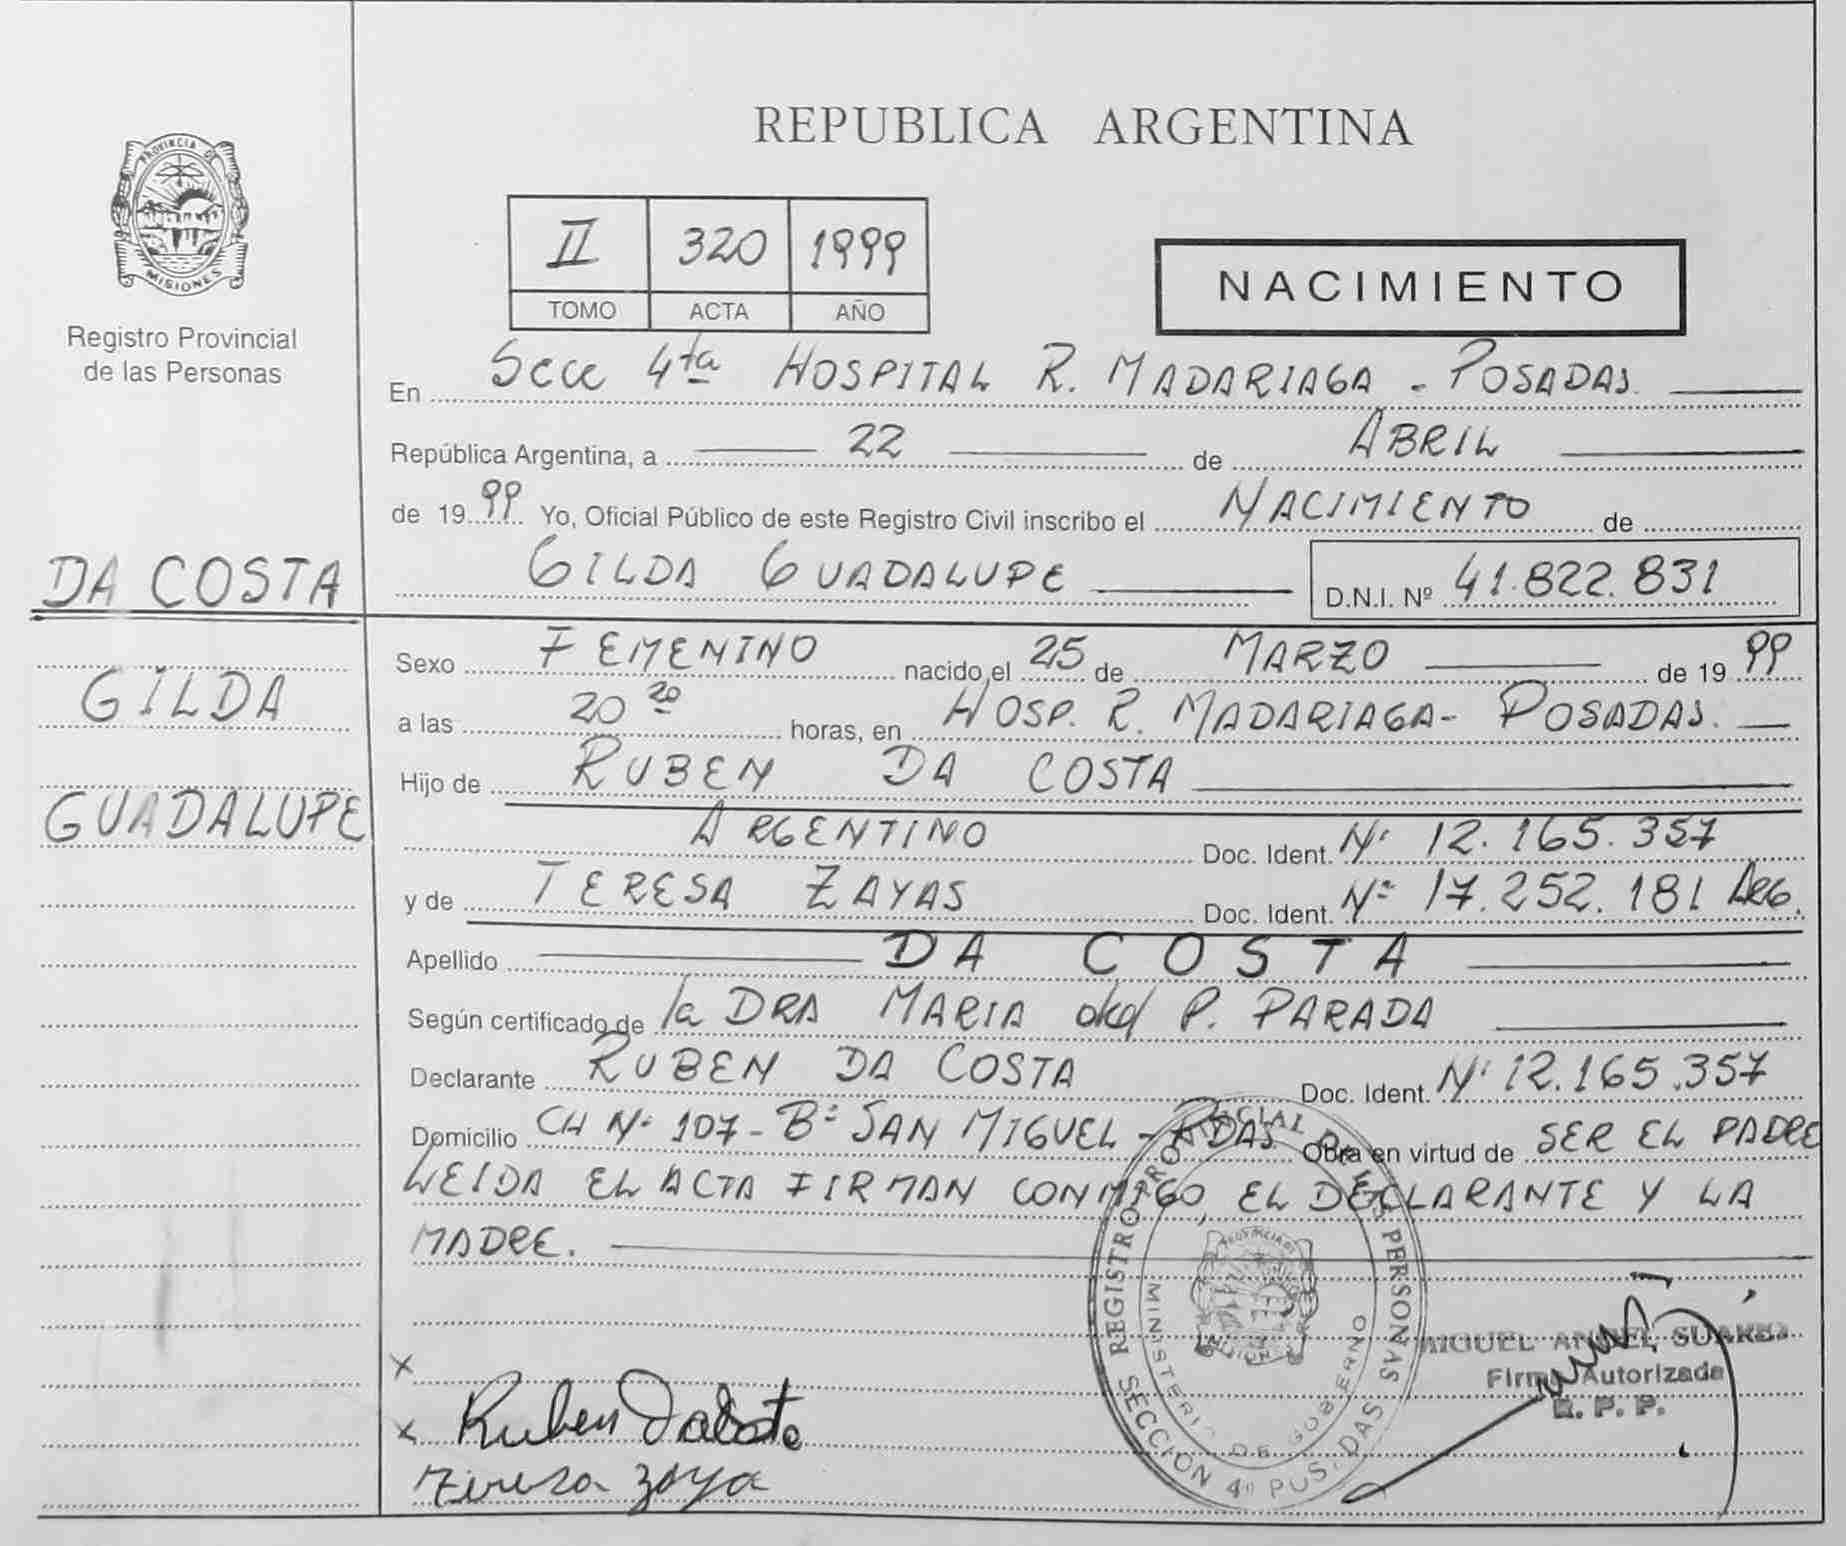 PROVINCIA DE
MISIONES
Registro Provincial
de las Personas
DA COSTA
GILDA
GUADALUPE
REPUBLICA ARGENTINA
II 320 1999
TOMO ACTA AÑO
NACIMIENTO
En Secc 4ta HOSPITAL R. MADARIAGA - POSADAS.
República Argentina, a 22 de ABRIL
de 1999 Yo, Oficial Público de este Registro Civil inscribo el NACIMIENTO de
GILDA GUADALUPE D.N.I. Nº 41.822.831
Sexo FEMENINO nacido el 25 de MARZO de 1999
a las 20 20 horas, en HOSP. R. MADARIAGA - POSADAS.
Hijo de RUBEN DA COSTA
ARGENTINO Doc. Ident. Nº 12.165.357
y de TERESA ZAYAS Doc. Ident. Nº 17.252.181 ARG.
Apellido DA COSTA
Según certificado de la DRA MARIA del P. PARADA
Declarante RUBEN DA COSTA Doc. Ident. Nº 12.165.357
Domicilio CH Nº 107 - Bº SAN MIGUEL - PDAS Obra en virtud de SER EL PADRE
LEIDA EL ACTA FIRMAN CONMIGO, EL DECLARANTE Y LA
MADRE.
REGISTRO PROVINCIAL DE LAS PERSONAS
MINISTERIO DE GOBIERNO
SECCIÓN 4º POSADAS
MIGUEL ANGEL SUAREZ
Firma Autorizada
R. P. P.
x
x Ruben Dacosta
Teresa Zaya